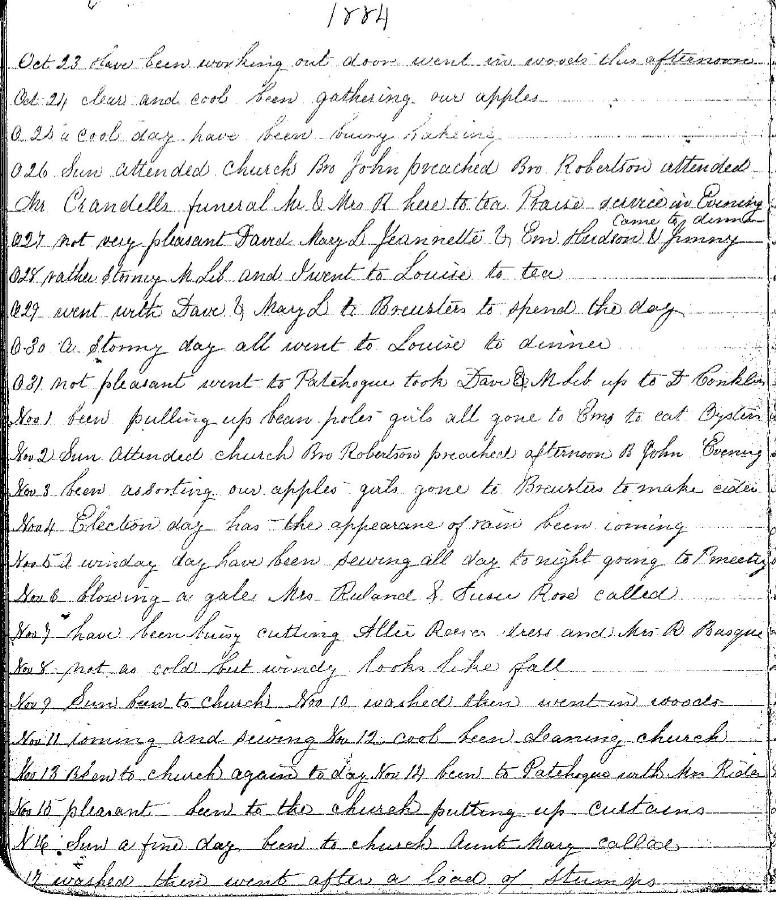 1884
Oct 23 Have been working out door went in woods this afternoon
Oct 24 clear and cool been gathering our apples
O 25 a cool day have been busy bakeing
O 26 Sun attended church Bro John preached Bro Robertson attended
Mr Crandells funeral Mr & Mrs R here to tea Praise service in Evening
came to dinner
O 27 not very pleasant David Mary L Jeannette & Em Hudson & Jimmy
O 28 rather stormy M Lib and I went to Louise to tea
O 29 went with Dave & Mary L to Brewsters to spend the day
O 30 a stormy day all went to Louise to dinner
O 31 not pleasant went to Patchogue took Dave & M Lib up to D Conklin
Nov 1 been pulling up bean poles girls all gone to Ems to eat Oysters
Nov 2 Sun attended church Bro Robertson preached afternoon B John Evening
Nov 3 been assorting our apples girls gone to Brewsters to make cider
Nov 4 Election day has the appearane of rain been ironing
Nov 5 A winday day have been sewing all day to night going to P meeting
Nov 6 blowing a gale Mrs Ruland & Susie Rose called
Nov 7 have been busy cutting Allie Reeves dress and Mrs R Basque
Nov 8 not as cold but windy looks like fall
Nov 9 Sun been to church Nov 10 washed then went in woods
Nov 11 ironing and sewing Nov 12 cool been cleaning church
Nov 13 Been to church again to day Nov 14 been to Patchogue with Mrs Rider
Nov 15 pleasant been to the church putting up curtains
N 16 Sun a fine day been to church Aunt Mary called
17 washed then went after a load of stumps